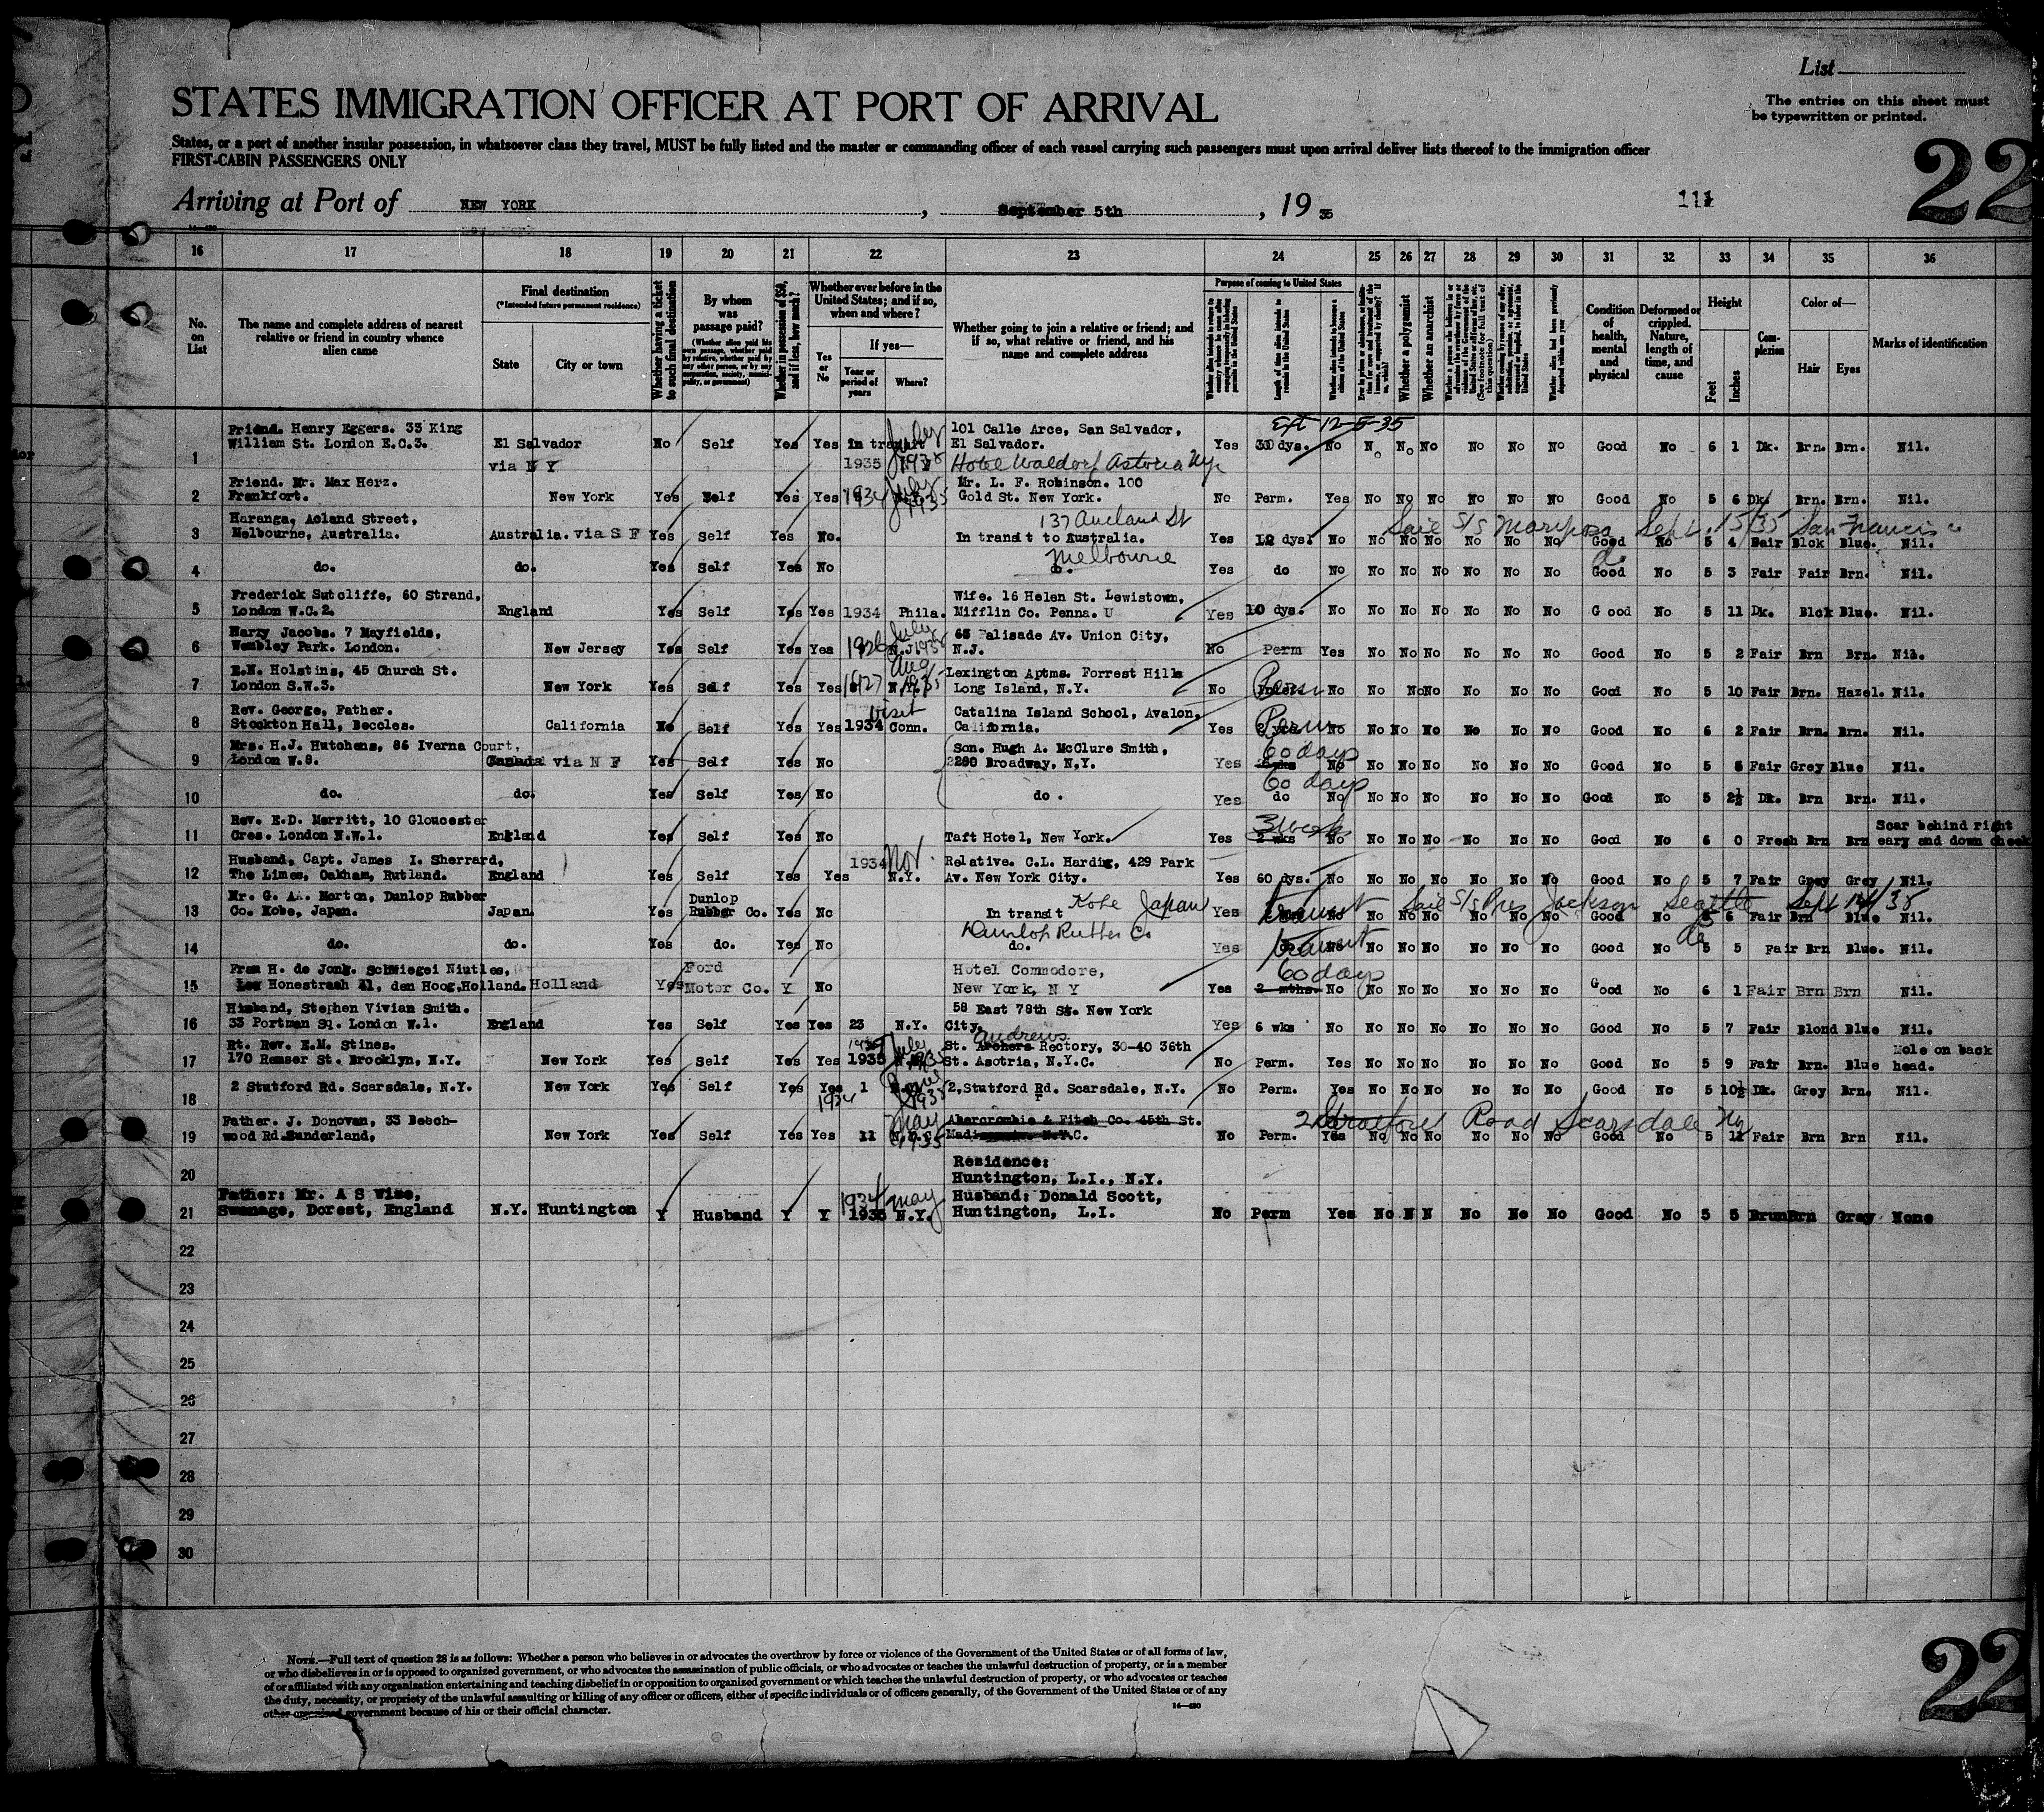 List
STATES IMMIGRATION OFFICER AT PORT OF ARRIVAL
The entries on this sheet must
be typewritten or printed.
States, or a port of another insular possession, in whatsoever class they travel, MUST be fully listed and the master or commanding officer of each vessel carrying such passengers must upon arrival deliver lists thereof to the immigration officer
FIRST-CABIN PASSENGERS ONLY
22
Arriving at Port of NEW YORK, September 5th, 19 35
111
16 17 18 19 20 21 22 23 24 25 26 27 28 29 30 31 32 33 34 35 36
No. on List
The name and complete address of nearest relative or friend in country whence alien came
Final destination
(*Intended future permanent residence)
State
City or town
Whether having a ticket to such final destination
By whom was passage paid?
(Whether alien paid his own passage, whether paid by relative, whether paid by any other person, or by any corporation, society, municipality, or government)
Whether in possession of $50, and if less, how much?
Whether ever before in the United States; and if so, when and where?
Yes or No
If yes—
Year or period of years
Where?
Whether going to join a relative or friend; and if so, what relative or friend, and his name and complete address
Purpose of coming to United States
Length of time alien intends to remain in the United States
Whether a polygamist
Whether an anarchist
Condition of health, mental and physical
Deformed or crippled. Nature, length of time, and cause
Height
Feet
Inches
Complexion
Color of—
Hair
Eyes
Marks of identification
Ext 12-5-35
1 Friend. Henry Eggers. 33 King William St. London E.C.3. El Salvador via N Y No Self Yes Yes in transit 1935 July 1935 101 Calle Arce, San Salvador, El Salvador. Hotel Waldorf Astoria Ny. Yes 30 dys. No No No No No No No Good No 6 1 Dk. Brn. Brn. Nil.
2 Friend. Mr. Max Herz. Frankfort. New York Yes Self Yes Yes 1934 July 1935 Mr. L. F. Robinson. 100 Gold St. New York. No Perm. Yes No No No No No No Good No 5 6 Dk. Brn. Brn. Nil.
3 Haranga, Acland Street, Melbourne, Australia. Australia. via S F Yes Self Yes No. 137 Aucland St In transit to Australia. Melbourne Yes 12 dys. No No No No No No No Good No 5 4 Fair Blck Blue. Nil.
Sail S/S Mariposa Sept. 15/35 San Francis
4 do. do. Yes Self Yes No do. Yes do No No No No No No No Good No 5 3 Fair Fair Brn. Nil.
5 Frederick Sutcliffe, 60 Strand, London W.C.2. England Yes Self Yes Yes 1934 Phila. Wife. 16 Helen St. Lewistown, Mifflin Co. Penna. U Yes 10 dys. No No No No No No No Good No 5 11 Dk. Blck Blue. Nil.
6 Harry Jacobs. 7 Mayfields, Wembley Park. London. New Jersey Yes Self Yes Yes 1926 July N.J 1935 65 Palisade Av. Union City, N.J. No Perm Yes No No No No No No Good No 5 2 Fair Brn Brn. Nil.
7 E.N. Holstins, 45 Church St. London S.W.3. New York Yes Self Yes Yes 1927 Aug N.Y. Lexington Aptms. Forrest Hills Long Island, N.Y. No Perm No No No No No No No Good No 5 10 Fair Brn. Hazel. Nil.
8 Rev. George, Father. Stockton Hall, Beccles. California No Self Yes Yes 1934 Visit Conn. Catalina Island School, Avalon, California. Yes Perm No No No No No No No Good No 6 2 Fair Brn. Brn. Nil.
9 Mrs. H.J. Hutchens, 86 Iverna Court, London W.8. Canada via N F Yes Self Yes No Son. Hugh A. McClure Smith, 2280 Broadway, N.Y. Yes 60 days No No No No No No No Good No 5 5 Fair Grey Blue Nil.
10 do. do. Yes Self Yes No do. Yes do 60 days No No No No No No No Good No 5 2½ Dk. Brn Brn. Nil.
11 Rev. E.D. Merritt, 10 Gloucester Cres. London N.W.1. England Yes Self Yes No Taft Hotel, New York. Yes 2 wks 3 weeks No No No No No No No Good No 6 0 Fresh Brn Brn Scar behind right eary and down cheek
12 Husband, Capt. James I. Sherrard, The Limes, Oakham, Rutland. England Yes Self Yes Yes 1934 Nov. N.Y. Relative. C.L. Hardig, 429 Park Av. New York City. Yes 60 dys. No No No No No No No Good No 5 7 Fair Grey Grey Nil.
13 Mr. G. A. Morton, Dunlop Rubber Co. Kobe, Japan. Japan Yes Dunlop Rubber Co. Yes No In transit Kobe Japan Dunlop Rubber Co Yes transit No No No No No No No Good No 5 6 Fair Brn Blue Nil.
Sail S/S Pres Jackson Seattle Sept 14/35
14 do. do. Yes do. Yes No do. Yes transit No No No No No No No Good No 5 5 Fair Brn Blue. Nil.
15 Frau H. de Jong. Schwiegei Niutles, Honestraah 41, den Hoog, Holland. Holland Yes Ford Motor Co. Y No Hotel Commodore, New York, N Y Yes 2 mths. 60 days No No No No No No No Good No 6 1 Fair Brn Brn Nil.
16 Husband, Stephen Vivian Smith. 33 Portman Sq. London W.1. England Yes Self Yes Yes 23 N.Y. 58 East 78th St. New York City. Yes 6 wks No No No No No No No Good No 5 7 Fair Blond Blue Nil.
17 Rt. Rev. E.M. Stines. 170 Remser St. Brooklyn, N.Y. New York Yes Self Yes Yes 1935 July 1935 St. Archers Andrews Rectory, 30-40 36th St. Asotria, N.Y.C. No Perm. Yes No No No No No No Good No 5 9 Fair Brn. Blue Mole on back head.
18 2 Stutford Rd. Scarsdale, N.Y. New York Yes Self Yes Yes 1 1934 June 1935 2, Stutford Rd. Scarsdale, N.Y. No Perm. Yes No No No No No No Good No 5 10½ Dk. Grey Brn. Nil.
19 Father. J. Donovan, 33 Beechwood Rd. Sunderland, New York Yes Self Yes Yes 11 May 1935 Abercrombie & Fitch Co. 45th St. N.Y.C. 2 Stratford Road Scarsdale Ny No Perm. Yes No No No No No No Good No 5 11 Fair Brn Brn Nil.
20 Residence: Huntington, L.I., N.Y.
21 Father: Mr. A S Wise, Swanage, Dorest, England N.Y. Huntington Y Husband Y Y 1934 1935 May N.Y. Husband: Donald Scott, Huntington, L.I. No Perm Yes No N N No No No Good No 5 5 Brun Brn Gray None
22
23
24
25
26
27
28
29
30
NOTE.—Full text of question 28 is as follows: Whether a person who believes in or advocates the overthrow by force or violence of the Government of the United States or of all forms of law,
or who disbelieves in or is opposed to organized government, or who advocates the assassination of public officials, or who advocates or teaches the unlawful destruction of property, or is a member
of or affiliated with any organization entertaining and teaching disbelief in or opposition to organized government or which teaches the unlawful destruction of property, or who advocates or teaches
the duty, necessity, or propriety of the unlawful assaulting or killing of any officer or officers, either of specific individuals or of officers generally, of the Government of the United States or of any
other organized government because of his or their official character.
14—430
22